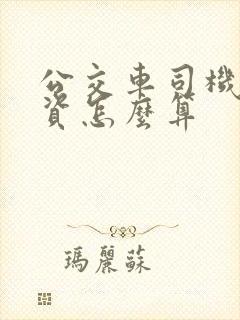 公交車司機
資怎麼算
瑪麗蘇